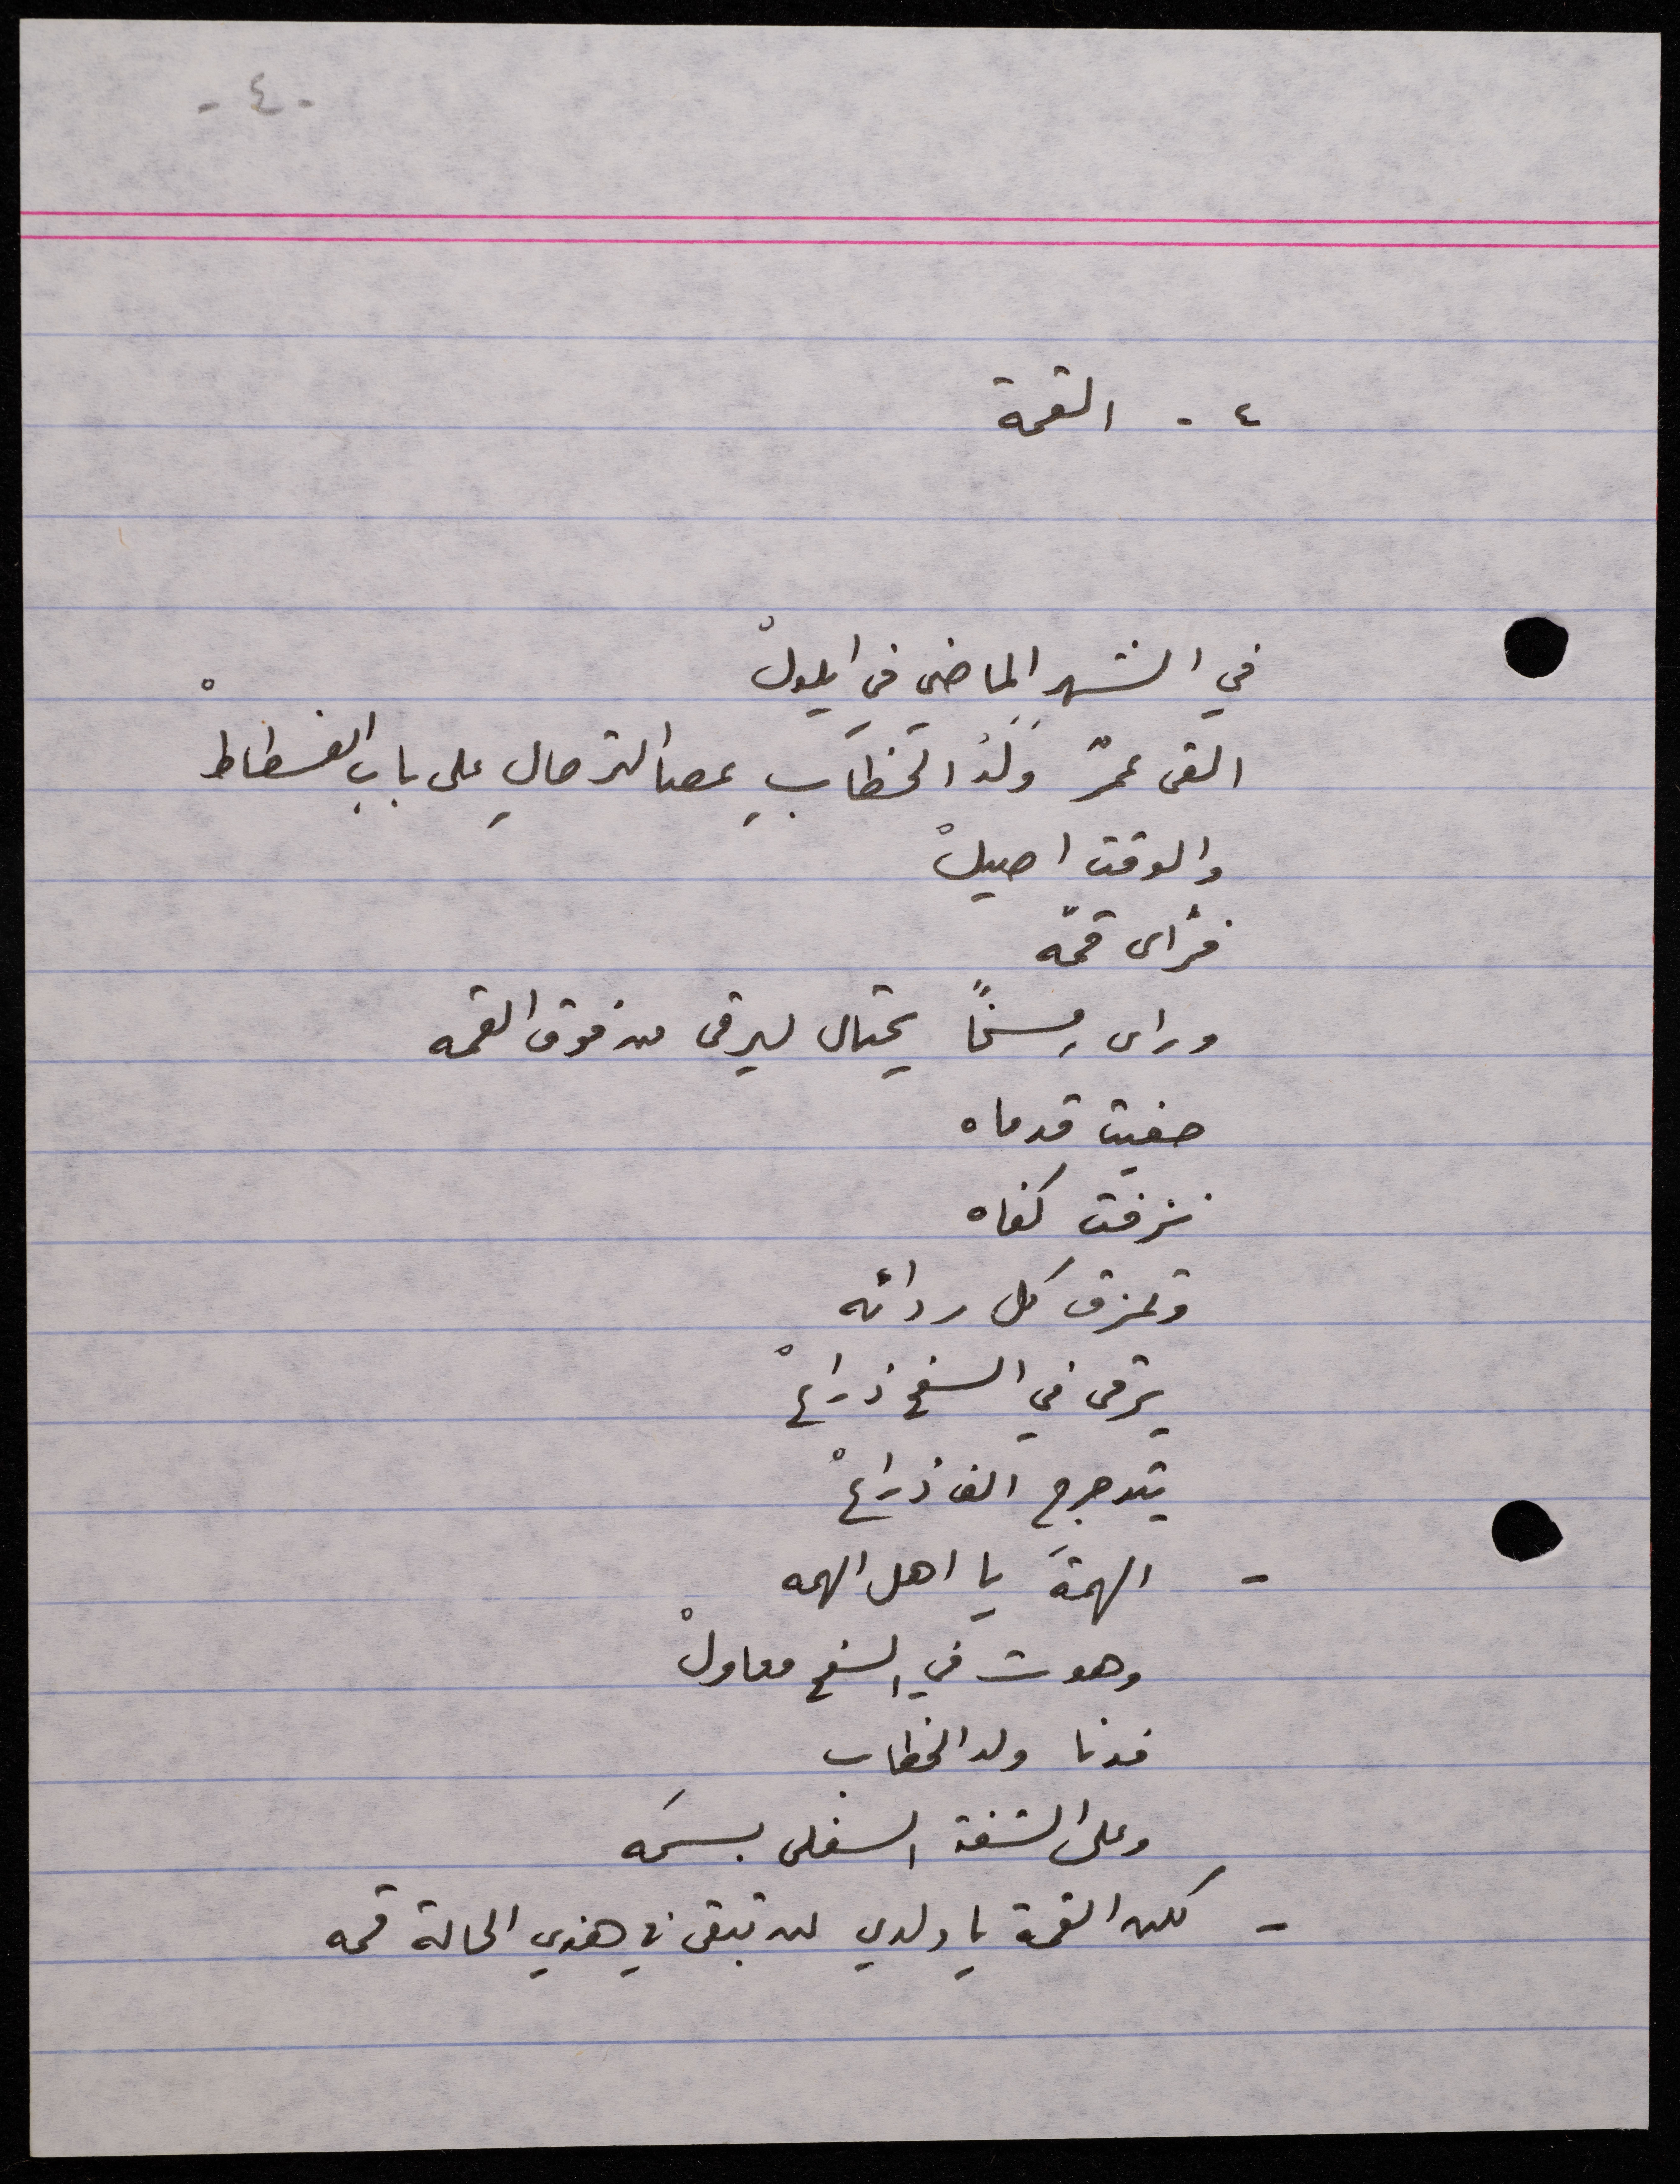 - ٤ -
٤ - القمة
في الشهر الماضي في ايلولْ
القى عمرٌ وَلَدُ الخطابِ عصا الترحالِ على بابِ الفسطاطْ
والوقت اصيلْ
فرأى قمّه
ورأى مِسخًا يحتال ليرقى من فوق القمه
حفيت قدماه
نزفت كفاه
وتمزق كل ردائه
يرقى في السفح ذراعْ
يتدحرج الف ذراعْ
- الهمةَ يا اهل الهمه
وهوت في السفح معاولْ
فدنا ولد الخطاب
وعلى الشفة السفلى بسمَه
- لكن القمة يا ولدي لن تبقى في هذي الحالة قمه